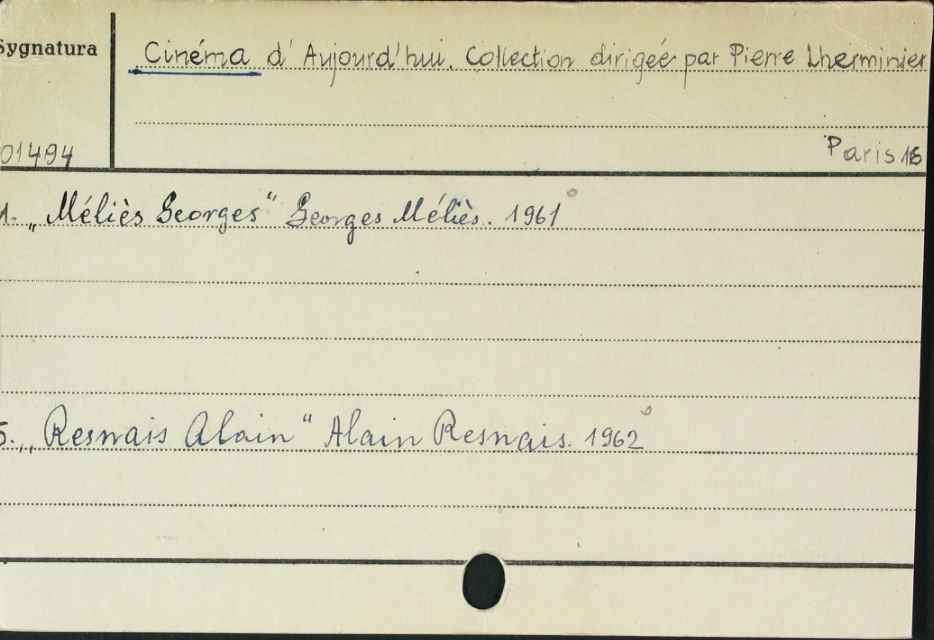 Sygnatura
Cinéma d'Aujourd'hui. Collection dirigée par Pierre Lherminier
01494
Paris 16
1. „Méliès Georges" Georges Méliès. 1961
5. „Resnais Alain" Alain Resnais. 1962